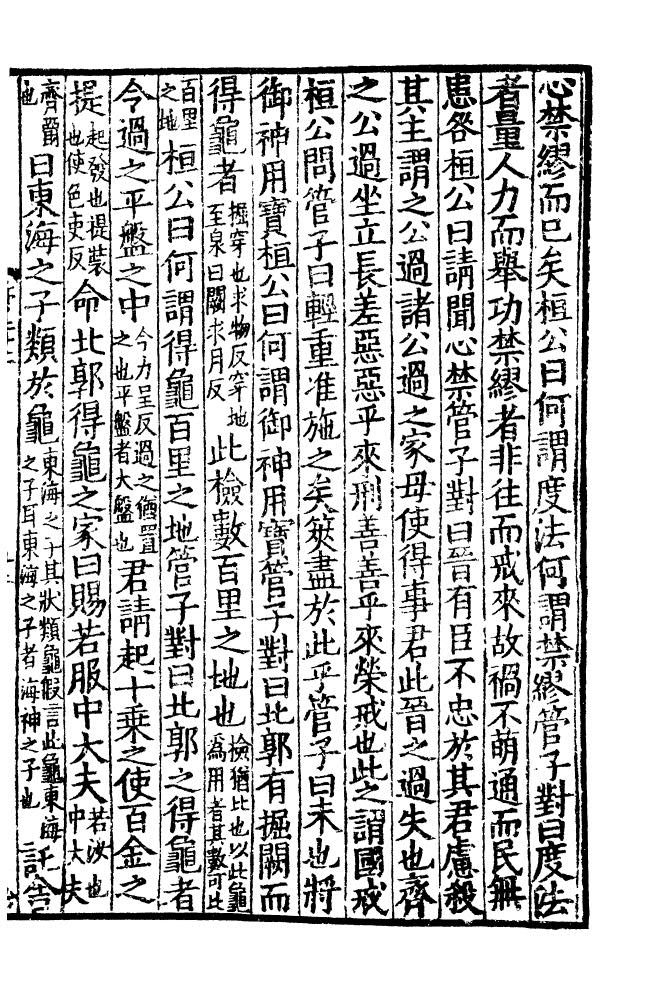 心禁繆而已矣桓公曰何謂度法何謂禁繆管子對曰度法
者量人力而舉功禁繆者非往而戒來故禍不萌通而民無
患咎桓公曰請聞心禁管子對曰晉有臣不忠於其君慮殺
其主謂之公過諸公過之家毋使得事君此晉之過失也齊
之公過坐立長差惡惡乎來刑善善乎來榮戒也此之謂國戒
桓公問管子曰輕重准施之矣筴盡於此乎管子曰未也將
御神用寶桓公曰何謂御神用寶管子對曰北郭有掘闕而
得龜者掘穿也求物反穿地至泉曰闕求月反此檢數百里之地也檢猶比也以此龜為用者其數可比
百里之地桓公曰何謂得龜百里之地管子對曰北郭之得龜者
令過之平盤之中令力呈反過之猶置之也平盤者大盤也君請起十乘之使百金之
提起發也提裝也使色吏反命北郭得龜之家曰賜若服中大夫若汝也中大夫
齊爵也曰東海之子類於龜東海之子其狀類龜假言此龜東海之子耳東海之子者海神之子也託舍